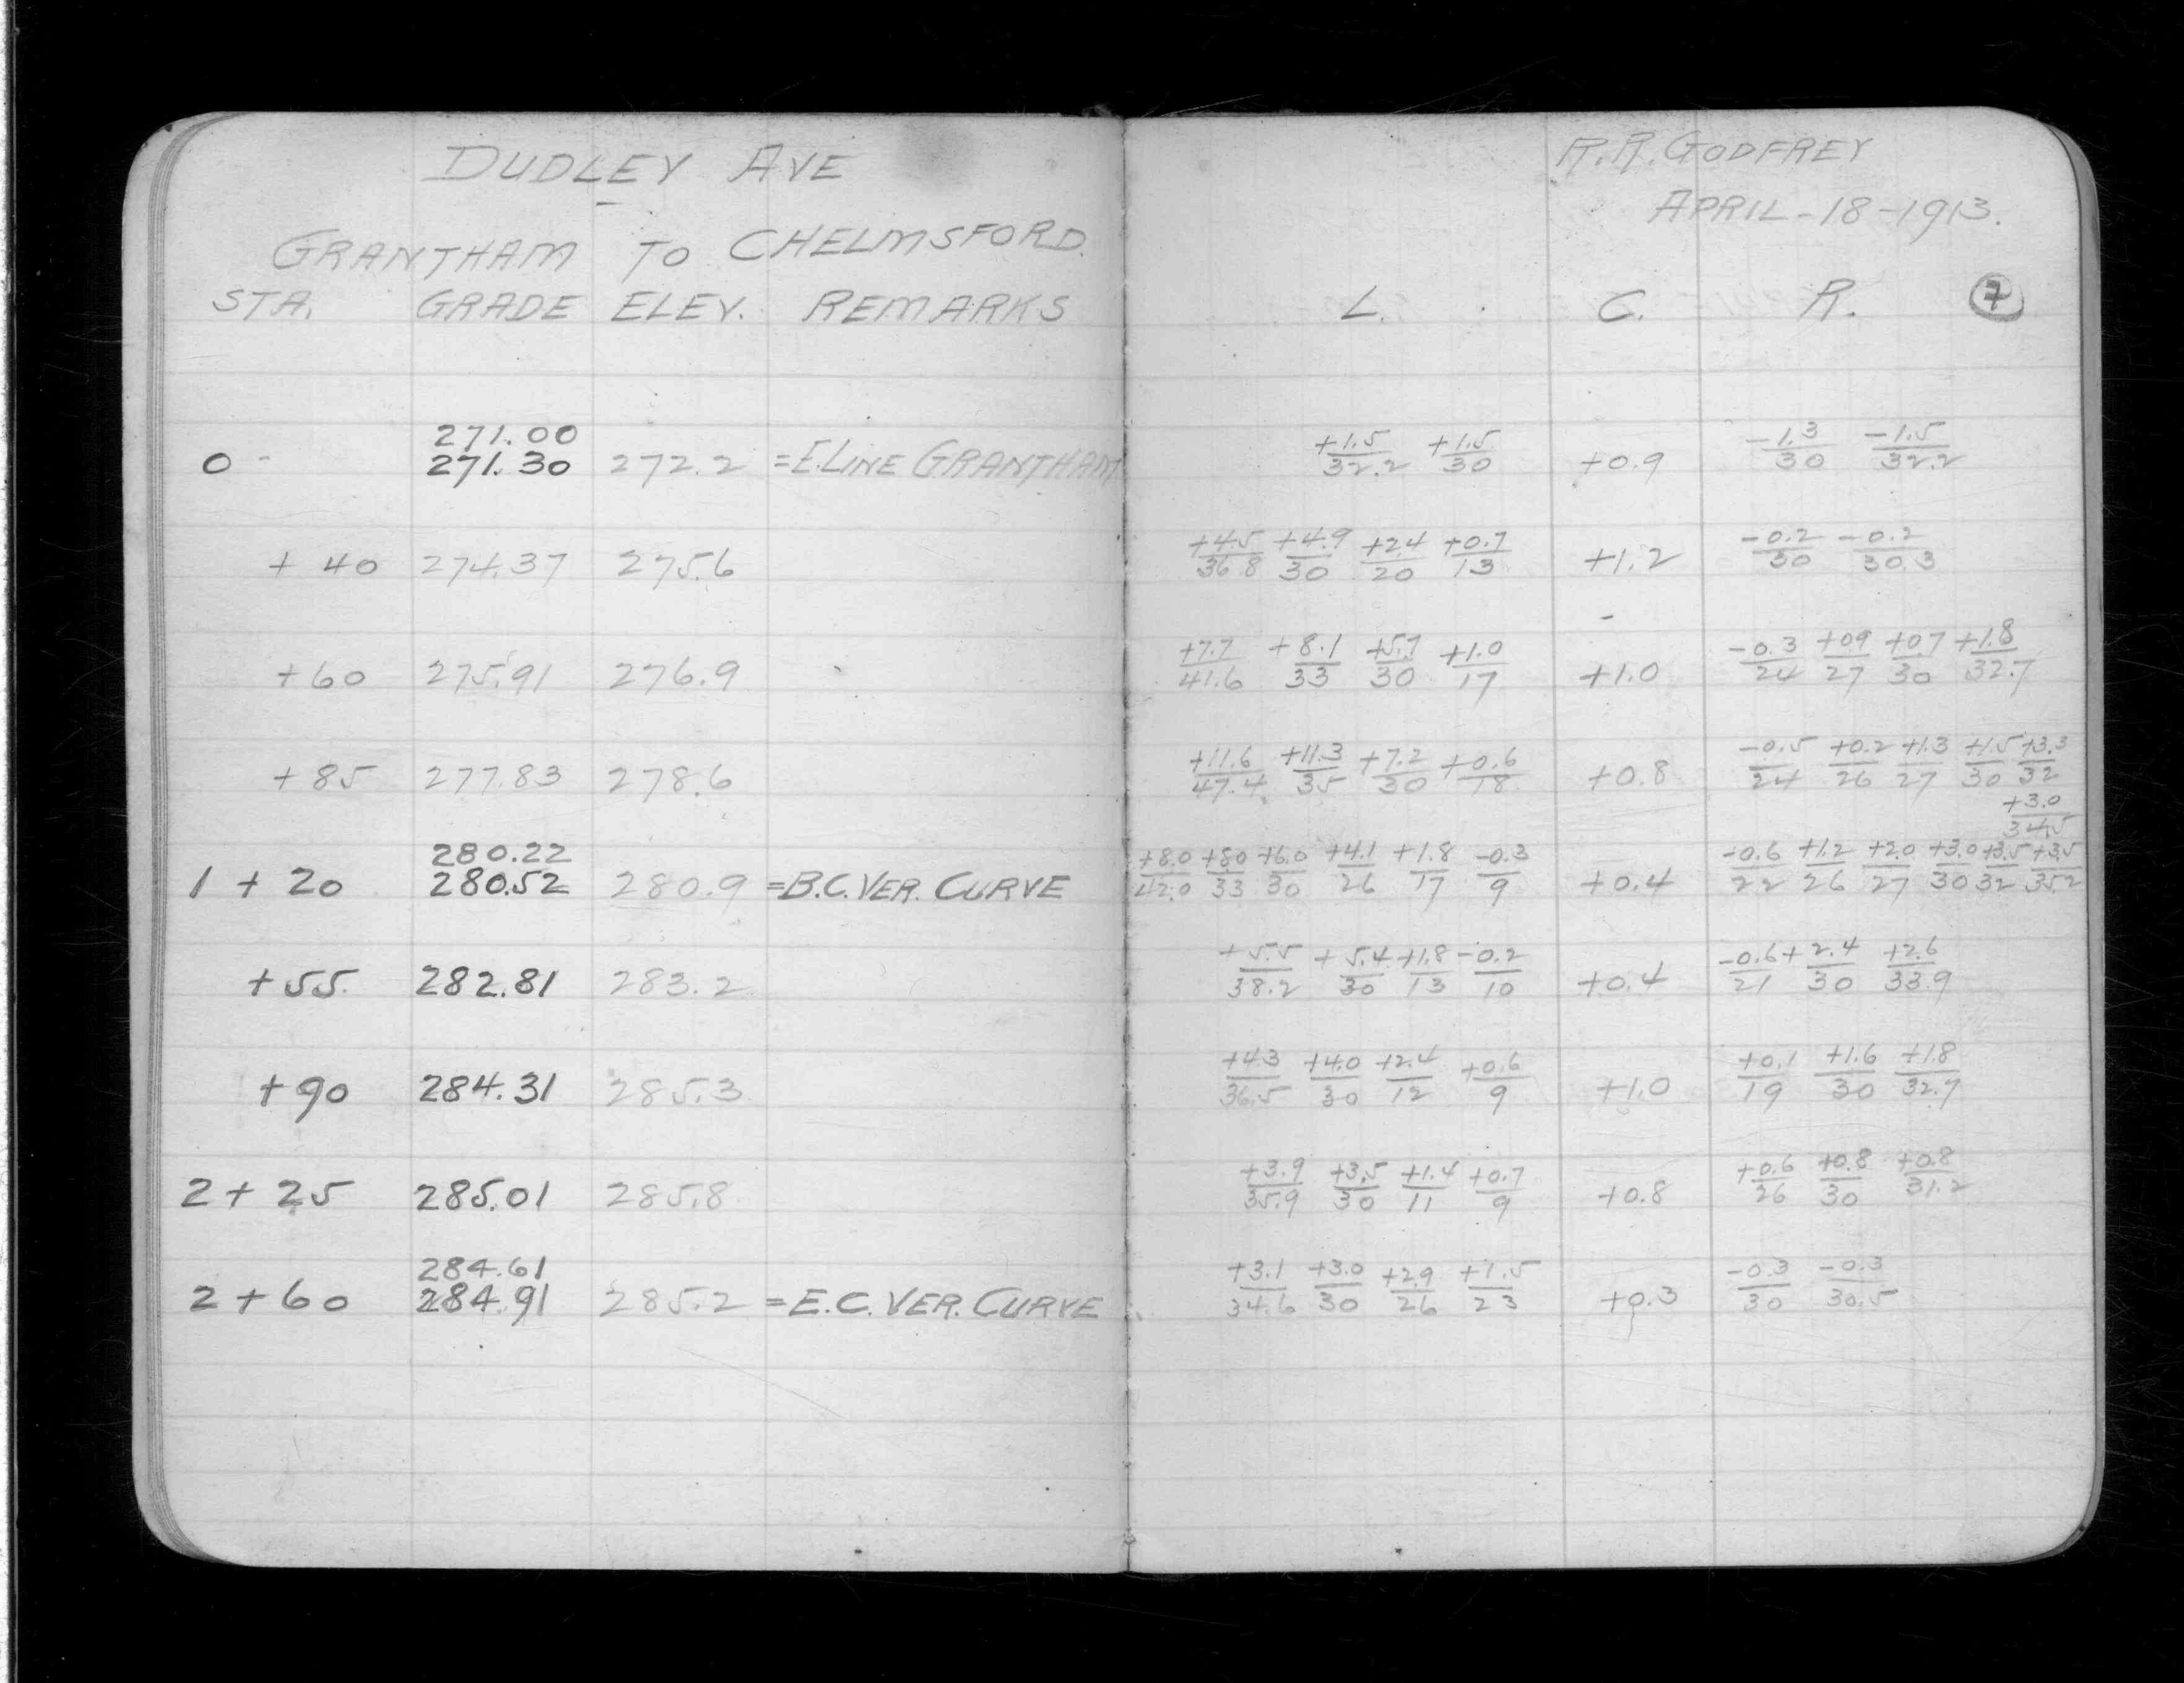 DUDLEY AVE
GRANTHAM TO CHELMSFORD.
STA. GRADE ELEV. REMARKS
271.00
0 - 271.30 272.2 =E.LINE GRANTHAM
+ 40 274.37 275.6
+60 275.91 276.9
+85 277.83 278.6
280.22
1 + 20 280.52 280.9 =B.C. VER. CURVE
+55. 282.81 283.2
+90 284.31 285.3
2 + 25 285.01 285.8
284.61
2 + 60 284.91 285.2 =E.C. VER. CURVE
R.R. GODFREY
APRIL-18-1913.
L. C. R. 7
+1.5 +1.5 -1.3 -1.5
32.2 30 +0.9 30 32.2
+4.5 +4.9 +2.4 +0.7 -0.2 -0.2
36.8 30 20 13 +1.2 30 30.3
+7.7 +8.1 +5.7 +1.0 -0.3 +09 +0.7 +1.8
41.6 33 30 17 +1.0 24 27 30 32.7
+11.6 +11.3 +7.2 +0.6 -0.5 +0.2 +1.3 +1.5 +3.3
47.4 35 30 18 +0.8 24 26 27 30 32
+3.0
34.5
+8.0 +8.0 +6.0 +4.1 +1.8 -0.3 -0.6 +1.2 +2.0 +3.0 +3.5 +3.5
42.0 33 30 26 17 9 +0.4 22 26 27 30 32 35.2
+5.5 +5.4 +1.8 -0.2 -0.6 +2.4 +2.6
38.2 30 13 10 +0.4 21 30 33.9
+4.3 +4.0 +2.4 +0.6 +0.1 +1.6 +1.8
36.5 30 12 9 +1.0 19 30 32.7
+3.9 +3.5 +1.4 +0.7 +0.6 +0.8 +0.8
35.9 30 11 9 +0.8 26 30 31.2
+3.1 +3.0 +2.9 +1.5 -0.3 -0.3
34.6 30 26 23 +0.3 30 30.5